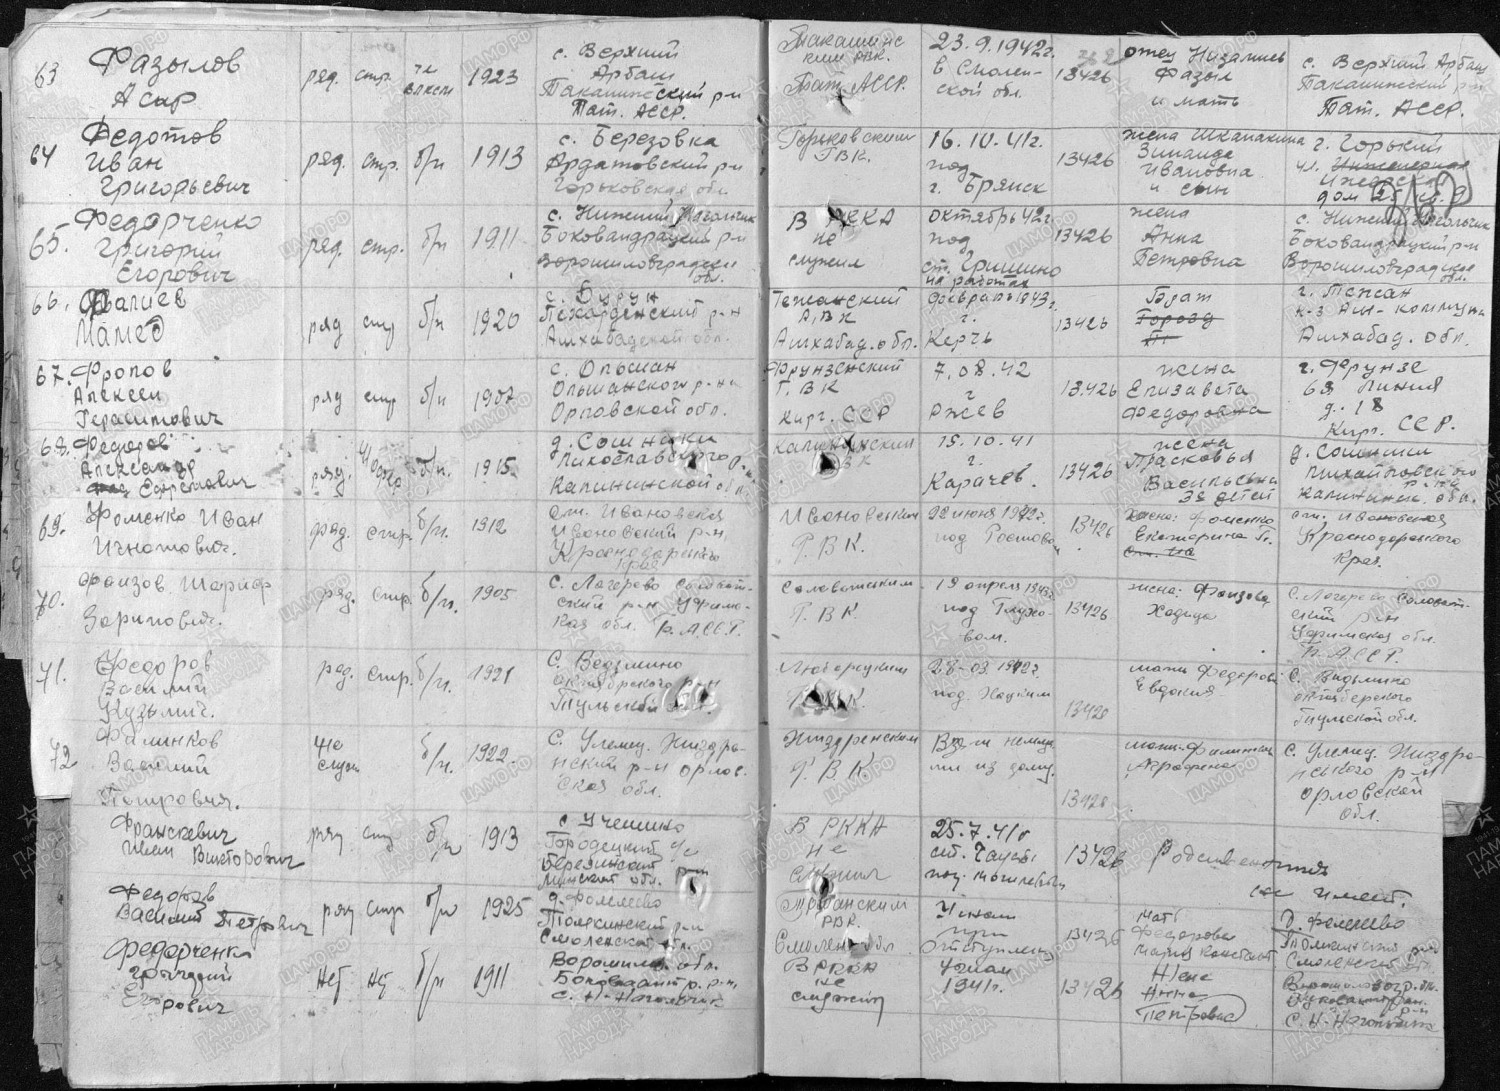 63
Фазылов
Асыр
ряд. стр. чл влксм 1923
с. Верхний
Арбаш
Такашинский р-н
Тат. АССР.
Такашинс
ким РВК.
Тат. АССР.
23.9.1942г.
в Смолен-
ской обл.
13426
отец Низамиев
Фазыл
и мать
с. Верхний Арбаш
Такашинский р-н
Тат. АССР.
64
Федотов
Иван
Григорьевич
ряд. стр. б/п 1913
с. Березовка
Ардатовский р-н
Горьковская обл.
Горьковским
ГВК.
16.10.41г.
под
г. Брянск
13426
жена
Зинаида
Ивановна
и сын
г. Горький
ул.
Ижорская
дом 25 кв. 9
65.
Федорченко
Григорий
Егорович
ряд. стр. б/п 1911
с. Нижний Нагольчик
Боковандрацкий р-н
Ворошиловградский
обл.
В РККА
не
служил
октябрь 42г.
под
ст. Гришино
на работах
13426
жена
Анна
Петровна
с. Нижний Нагольчик
Боковандрацкий р-н
Ворошиловградская
обл.
66.
Фалиев
Мамед
ряд стр б/п 1920
с. Бурун
Ашхабадской обл.
Тежанский
РВК
Ашхабад. обл.
февраль 1943г.
г.
Керчь
13426
Брат
г. Тежан
к-з Аш-коммуна
Ашхабад. обл.
67.
Фролов
Алексей
Герасимович
ряд стр б/п 1907
с. Ольшан
Ольшанского р-на
Орловской обл.
Фрунзенский
Г. В К
Кирг. ССР
7.08.42
г.
Ржев
13426
жена
Елизавета
Федоровна
г. Фрунзе
68 линия
д. 18
Кирг. ССР.
68.
Федоров
Александр
Сергеевич
ряд. б/п. 1915
д. Сошники
Лихославского р.
Калининской обл.
Калининский
ВК
15.10.41
г.
Карачев.
13426
жена
Прасковья
Васильевна
3е детей
д. Сошники
Калининск. обл.
69.
Фоменко Иван
Игнатович.
ряд. стр. б/п. 1912
ст. Ивановская
Ивановский р-н.
Краснодарского
края
Ивановским
Р.В.К.
22 июня 1942г.
под Ростовом
13426
жена: Фоменко
Екатерина П.
ст. Ивановская
Краснодарского
края.
70.
Фаизов Шариф
Зарипович.
ряд. стр. б/п. 1905
с. Лагерево Салават-
ский р-н Уфимс-
кая обл. Б.АССР.
Салаватским
Р.В.К.
19 апреля 1943г.
под Глухо-
вом.
13426
жена: Фаизова
Хадица
с. Лагерево Салават-
ский р-н
Уфимская обл.
Б. АССР.
71.
Федоров
Василий
Кузьмич.
ряд. стр. б/п. 1921
с. Ведьмино
октябрского р-н
Тульской обл.
Люберецким
РВК
28-03.1942г.
под
13426
мать Федорова
Евдокия.
с. Видьмино
октябрского
Тульской обл.
72
Фалинков
Василий
Петрович.
не
служ
б/п. 1922.
с. Улемец. Жиздри-
нский р-н Орлов.
ская обл.
Жиздренским
Р.В.К.
Взяли немца-
ми из дому.
13426
мать-Фалинкова
Аграфена
с. Улемец. Жиздри-
нського р-н
Орловской
обл.
Францкевич
Иван Викторович
ряд стр б/п 1913
с Учешино
Городецкий с/с
Березинский р-н
Минской обл.
В РККА
не
служил
25.7.41г
ст. Чаусы
под Могилевом
13426
Родственников
не имеет.
Федоров
Василий Петрович
ряд стр б/п 1925
д. Фомелево
Смоленской обл.
РВК.
Смолен обл
Угнан
при
отступлен
13426
мать
Федорова
Мария Констант
Д. Фомелево
Смоленской обл
Федорченко
Григорий
Егорович
нет нет б/п 1911
Ворошилов. обл.
Боковоантр. р-н.
с. Н-Нагольчик
В РККА
не
служил
Угнан
1941г.
13426
Жена
Анна
Петровна
Ворошиловогр. обл.
Боковоантрац.
р-н
с. Н-Нагольчик